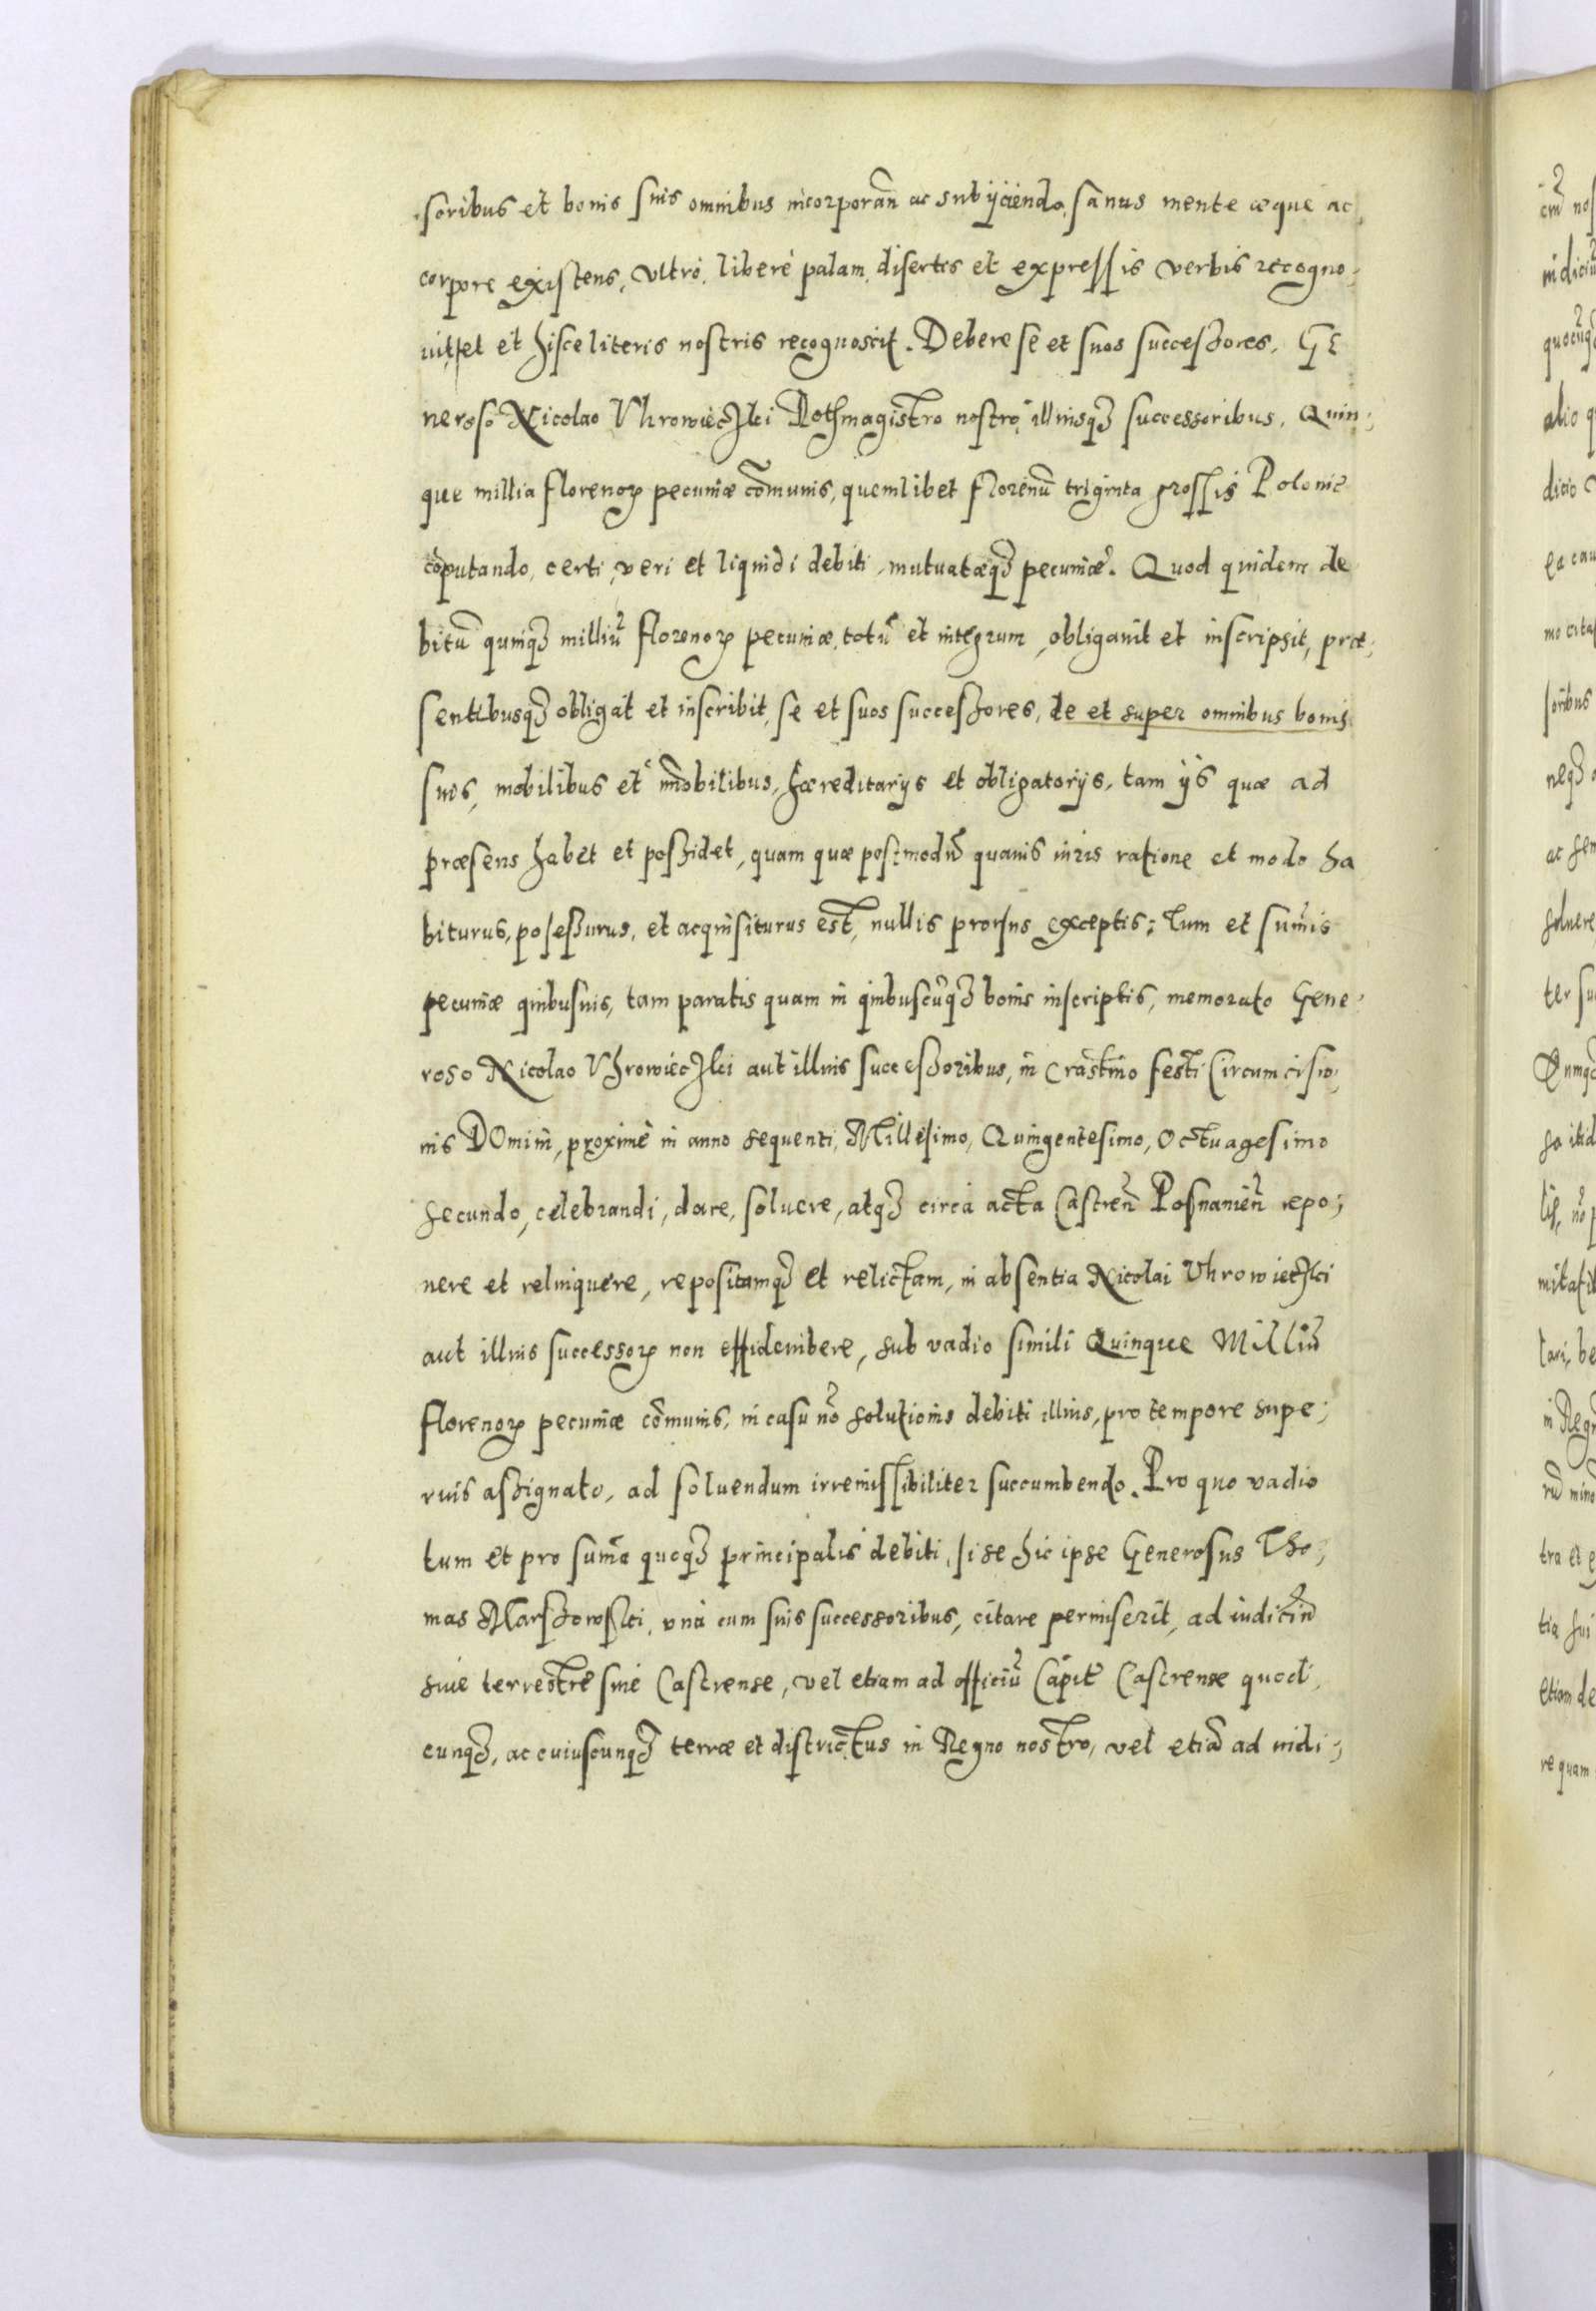 soribus et bonis suis omnibus incorporan̄ ac subijciendo, sanus mente æque ac
corpore existens, ultrò, liberè palam, disertis et expressis verbis recogno,
uit et hisce literis nostris recognoscit. Debere se et suos successores, GE
neroso Nicolao Vhrowieczki Rothmagistro nostro, illiusq₃ successoribus, Quin,
que millia florenoꝝ pecuniæ cōmunis, quemlibet florenū triginta grossis Polonic
cōputando, certi, veri et liquidi debiti, mutuatæq₃ pecuniæ. Quod quidem de
bitū quinq₃ milliū florenoꝝ pecuniæ, totū et integrum, obligauit et inscripsit, præ,
sentibusq₃ obligat et inscribit, se et suos successores, de et super omnibus bonis
suis, mobilibus et im̄obilibus, hæreditarijs et obligatorijs, tam ijs quæ ad
præsens habet et possidet, quam quæ postmodū quauis iuris ratione et modo ha
biturus, possessurus, et acquisiturus est, nullis prorsus exceptis; Tum et sum̄is
pecuniæ quibusuis, tam paratis quam in quibuscūq₃ bonis inscriptis, memorato Gene,
roso Nicolao Vhrowieczki aut illius successoribus, in Crastino festi Circumcisio,
nis DOmini, proximè in anno sequenti, Millesimo, Quingentesimo, Octuagesimo
secundo, celebrandi, dare, soluere, atq₃ circa acta Castren̄ Posnanien̄ repo;
nere et relinquere, repositamq₃ et relictam, in absentia Nicolai Vhrowieczki
aut illius successoꝝ non effidenibere, sub vadio simili Quinque Milliū
florenoꝝ pecuniæ cōmunis, in casu nō solutionis debiti illius, pro tempore supe;
rius assignato, ad soluendum irremissibiliter succumbendo. Pro quo vadio
tum et pro sum̄a quoq₃ principalis debiti, si se hic ipse Generosus Tho;
mas Marszowski, unà cum suis successoribus, citare permiserit, ad iudiciū
siue terrestre siue Castrense, vel etiam ad officiū Capit̄ Castrense quod,
cunq₃, ac cuiuscunq₃ terræ et districtus in Regno nostro, vel etiā ad iudi;